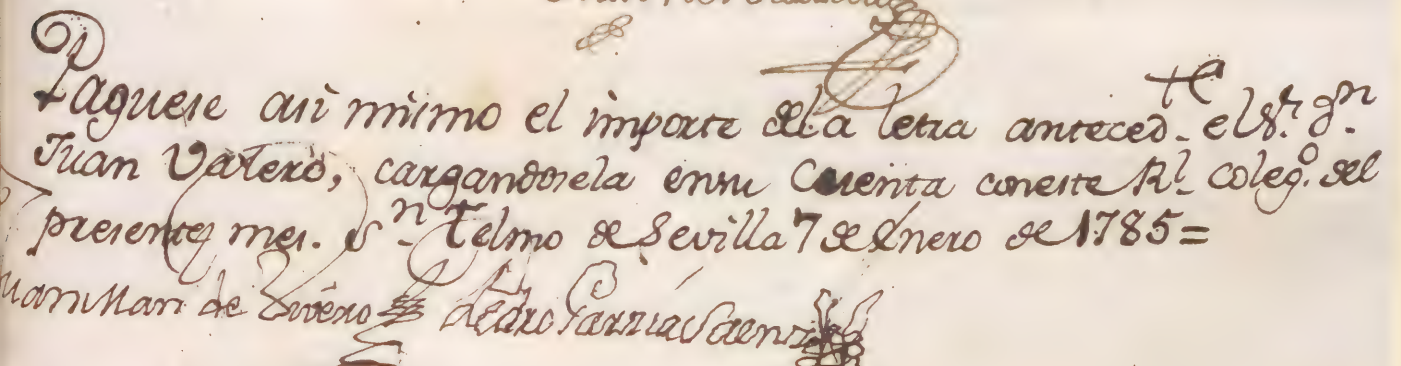 Paguese asi mismo el importe dela letra anteced.te el Sr. Dn.
Juan Valero, cargandosela ensu Cuenta coneste Rl. Colego. del
presente mes. Sn. Telmo de Sevilla 7 de Enero de 1785=
de Pedro Garzia Saenz